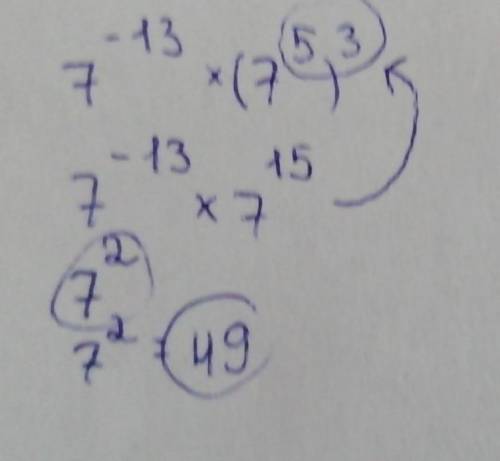 7⁻¹³ × (7⁵)³
7⁻¹³ × 7¹⁵
7²
7² = 49